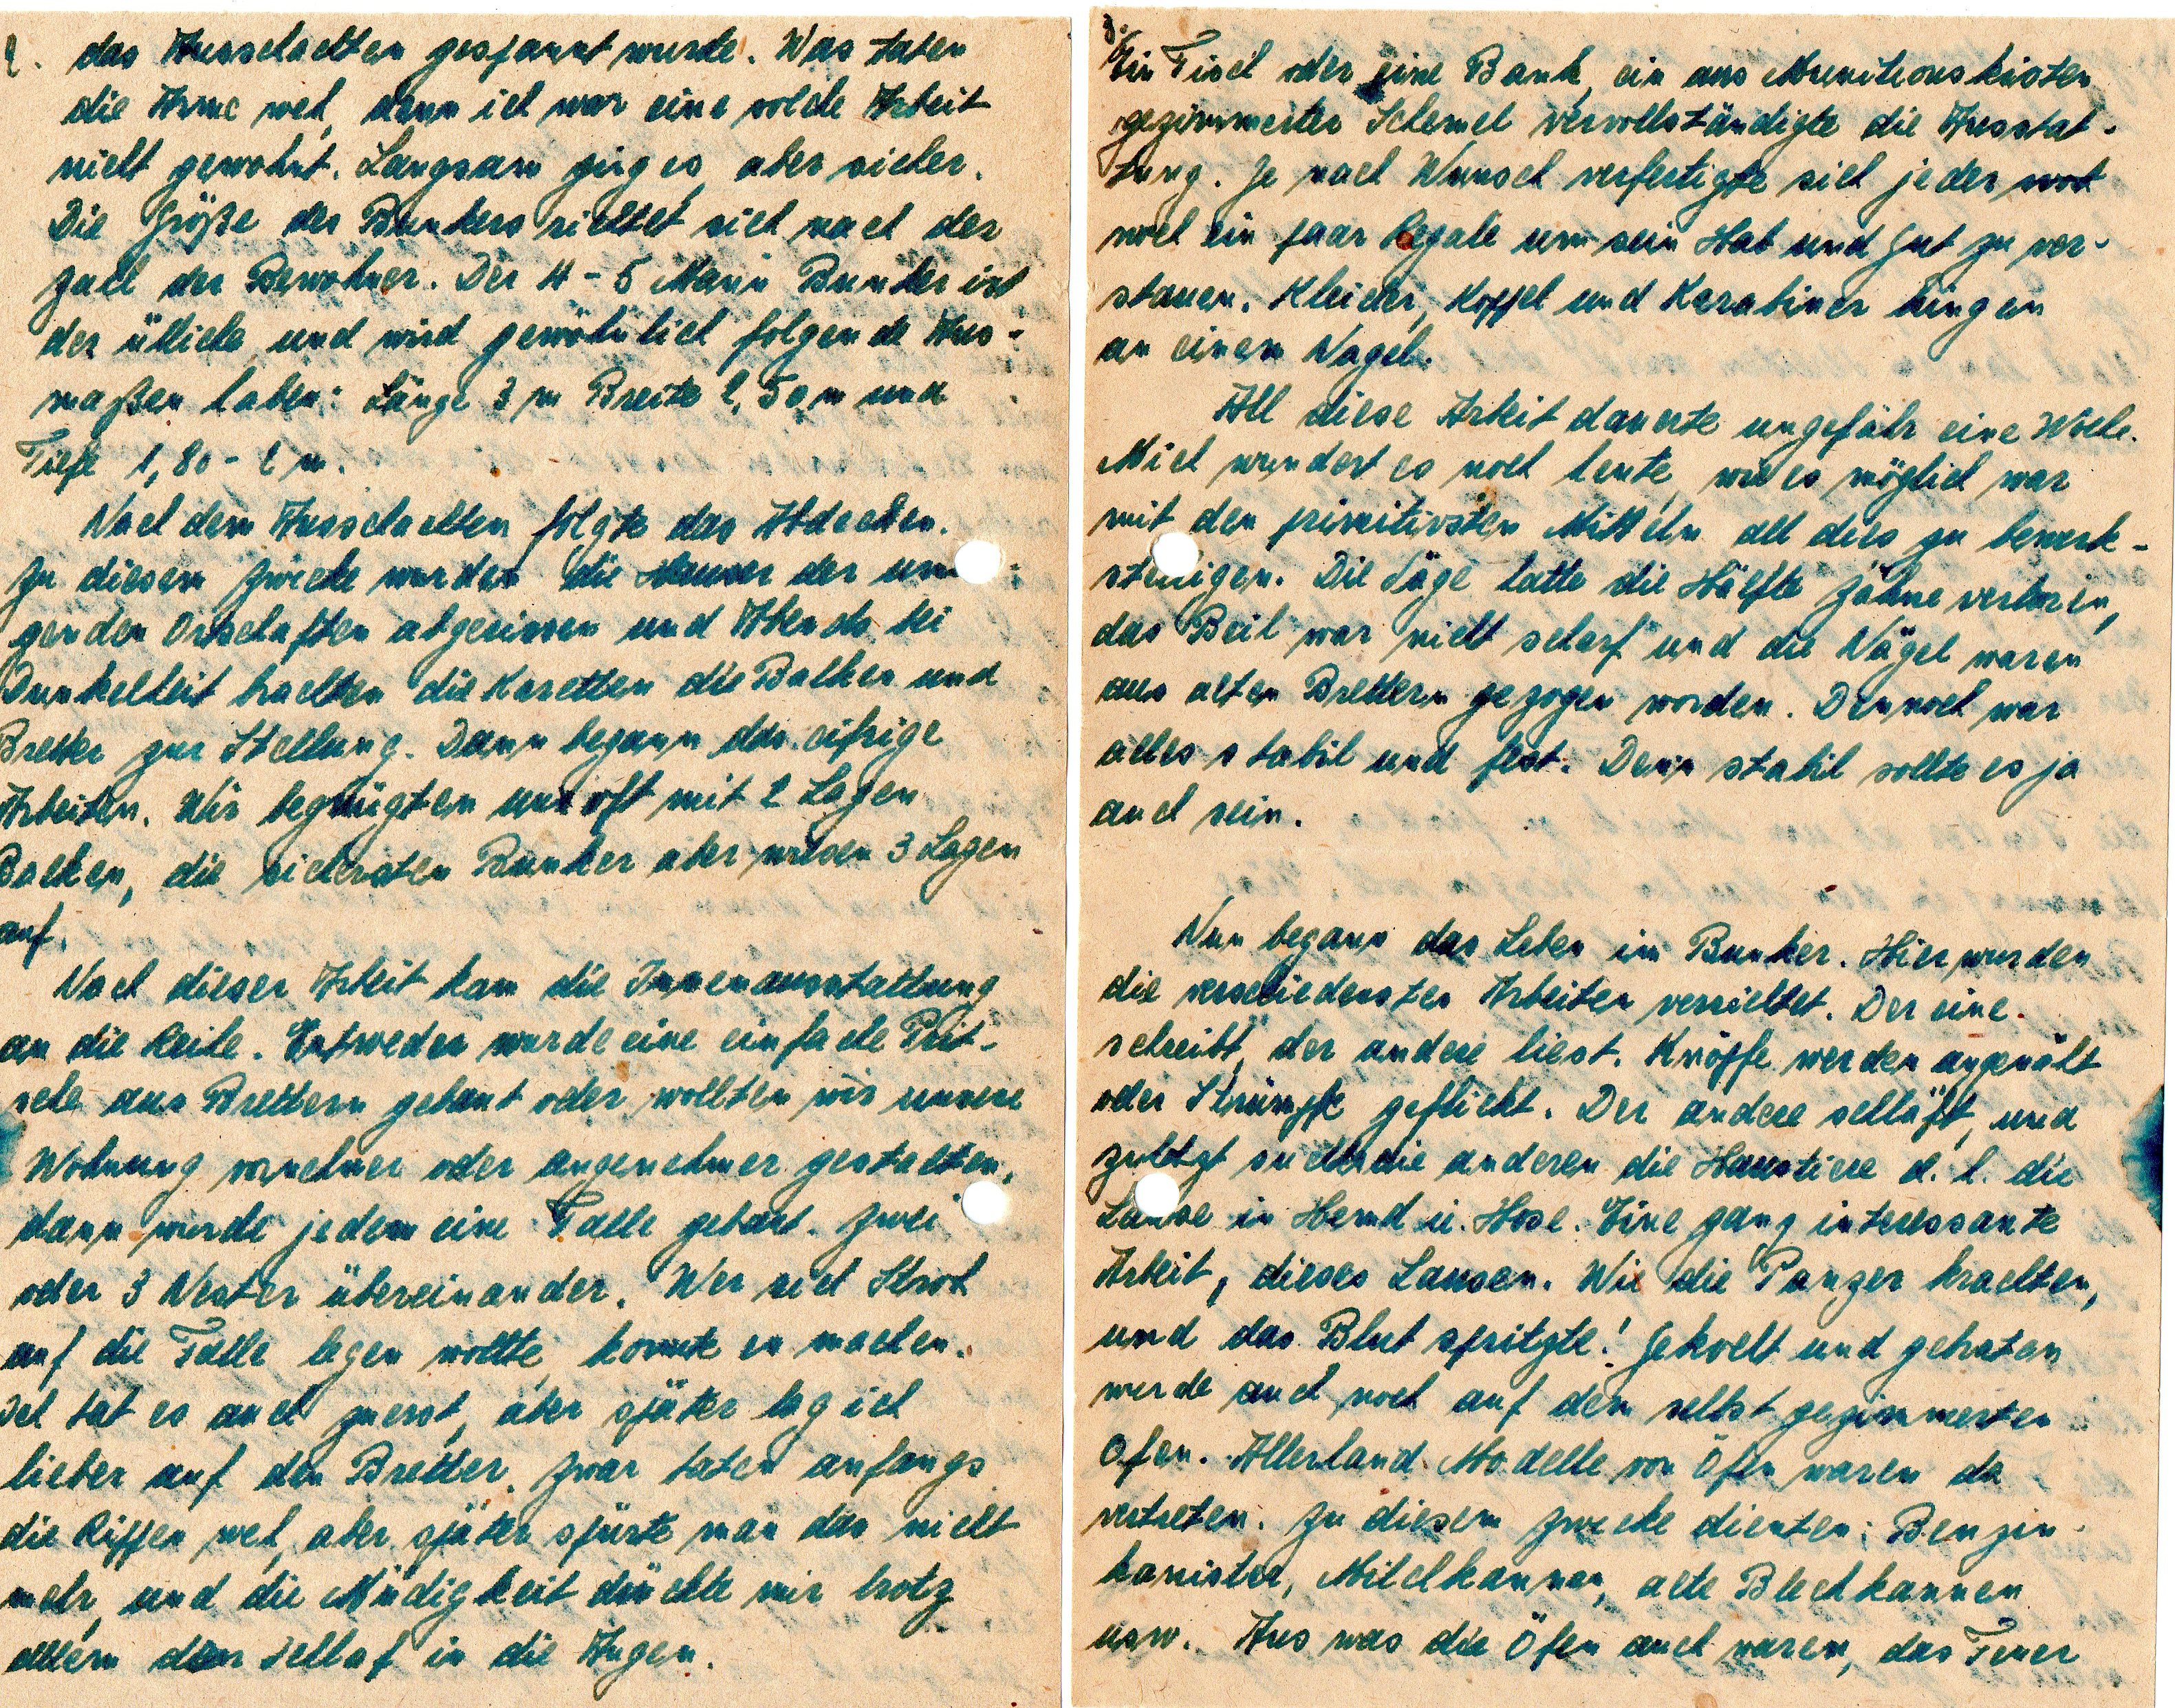 2.
das Ausschachten gespannt wurde. Was taten
die Arme weh, denn ich war eine solche Arbeit
nicht gewohnt. Langsam ging es, aber sicher.
Die Größe des Bunkers richtet sich nach der
Zahl der Bewohner. Der 4 - 5 Mann Bunker ist
der übliche und wird gewöhnlich folgende Aus-
maßen haben: Länge 3 m Breite 2,50 m und
Tiefe 1,80 - 2 m.
Nach dem Ausschachten folgte das Abdecken.
Zu diesem Zwecke wurden die Häuser der um
genden Ortschaften abgerissen und Abends bei
Dunkelheit brachten die Karetten die Balken und
Bretter zur Stellung. Dann begann das eifrige
Arbeiten. Wir begnügten uns oft mit 2 Lagen
Balken, die sichersten Bunker aber wiesen 3 Lagen
auf.
Nach dieser Arbeit kam die Innenausstattung
an die Reihe. Entweder wurde eine einfache Prit-
sche aus Brettern gebaut oder wollten wir unsere
Wohnung vornehmer oder angenehmer gestalten,
dann wurde jedem eine Falle gebaut. Zwei
oder 3 Nester übereinander. Wer sich Stroh
auf die Falle legen wollte, konnte es machen.
Ich tat es auch zuerst, aber später lag ich
lieber auf den Bretter. Zwar taten anfangs
die Rippen weh, aber später spürte man das nicht
mehr, und die Müdigkeit drückte mir trotz
allem den Schlaf in die Augen.
3.
Ein Tisch oder eine Bank, ein aus Munitionskisten
gezimmerter Schemel vervollständigte die Ausstat-
tung. Je nach Wunsch verfertigte sich jeder
noch ein paar Regale um sein Hab und Gut zu ver-
stauen. Kleider, Koppel und Karabiner hingen
an einem Nagel.
All diese Arbeit dauerte ungefähr eine Woche.
Mich wundert es noch heute, wie es möglich war
mit den primitivsten Mitteln all dies zu bewerk-
stelligen. Die Säge hatte die Hälfte Zähne verloren,
das Beil war nicht scharf und die Nägel waren
aus alten Brettern gezogen worden. Dennoch war
alles stabil und fest. Denn stabil sollte es ja
auch sein.
Nun begann das Leben im Bunker. Hier wurden
die verschiedensten Arbeiten verrichtet. Der eine
schreibt, der andere liest. Knöpfe werden angenäht
oder Strümpfe geflickt. Der andere schläft, und
zuletzt suchten die anderen die Haustiere d. h. die
Läuse in Hemd u. Hose. Eine ganz interessante
Arbeit, dieses Lausen. Wie die Panzer krachten,
und das Blut spritzte! Gekocht und gebraten
wurde auch noch auf dem selbst gezimmerten
Ofen. Allerhand Modelle von Öfen waren da
vertreten. Zu diesem Zwecke dienten: Benzin-
kanister, Milchkannen, alte Blechkannen
usw. Aus was die Öfen auch waren, das Feuer